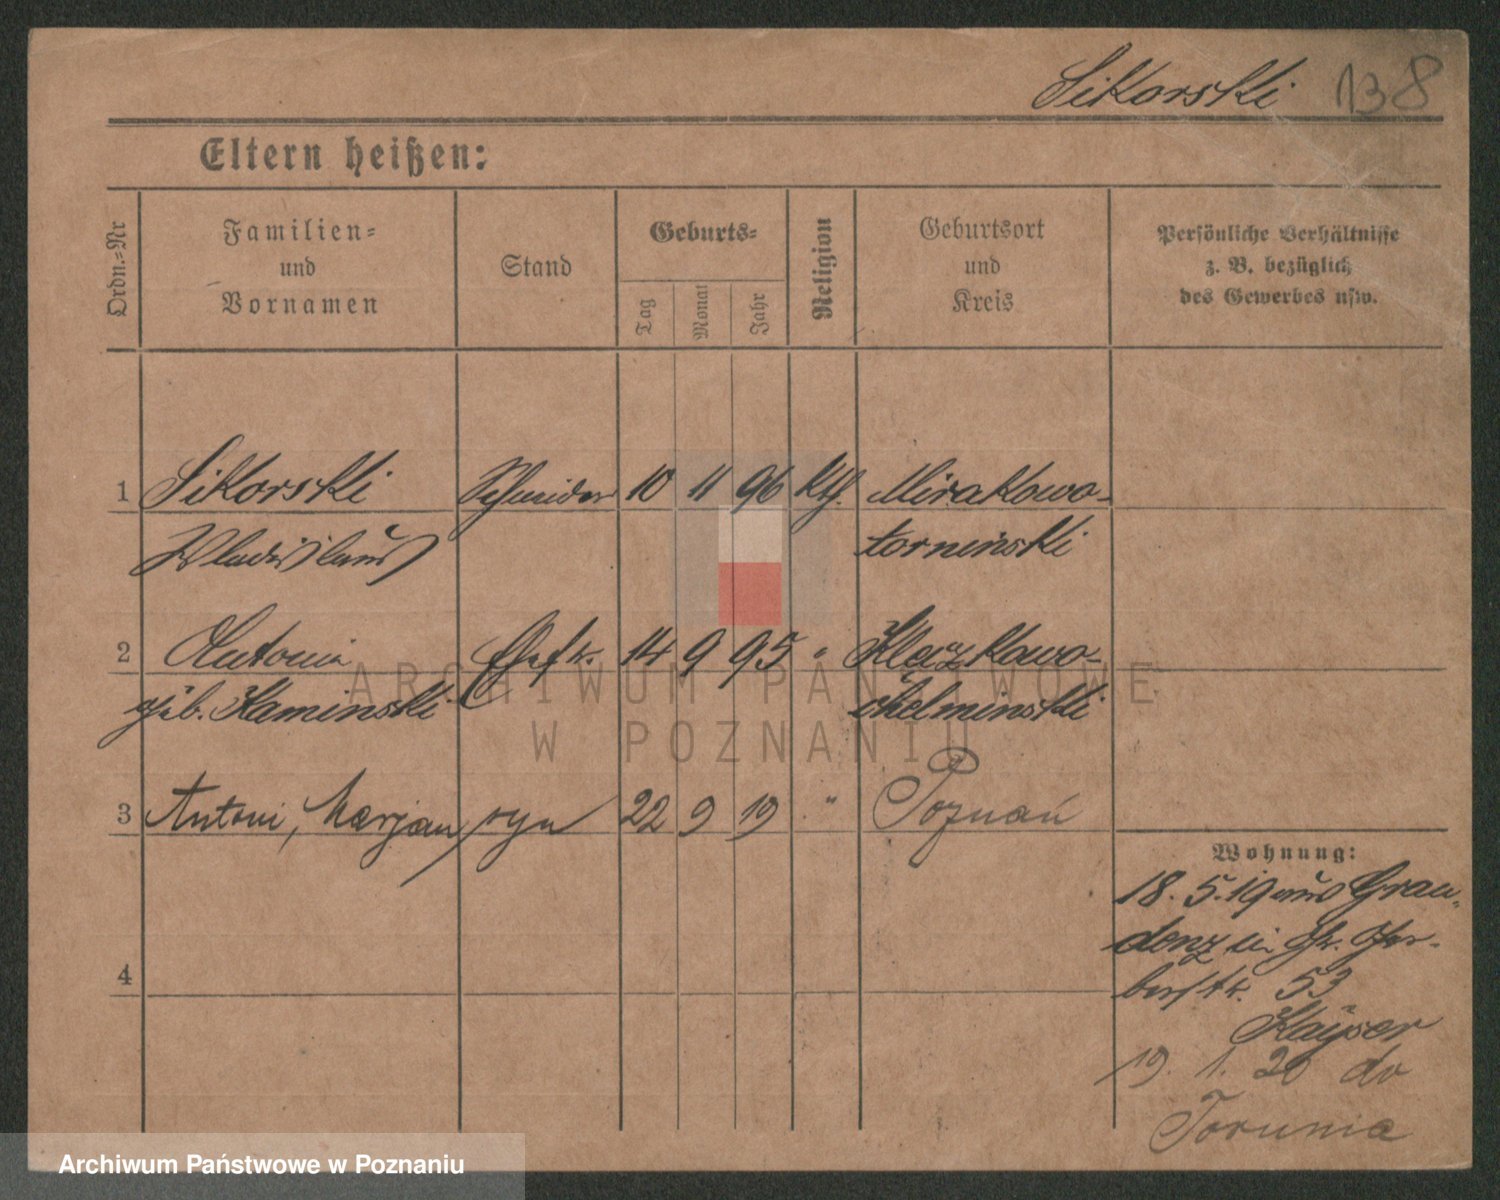 Sikorski 138
Eltern heißen:
Ordn.-Nr
Familien-
und
Vornamen
Stand
Geburts-
Tag
Monat
Jahr
Religion
Geburtsort
und
Kreis
Persönliche Verhältnisse
z. B. bezüglich
des Gewerbes usw.
1 Sikorski Schneider 10 11 96 kth. Mirakowo-
Wladislaus torninski
2 Antonie Ehefr. 14 9 95 " Kleczkowo-
geb. Kaminski chelminski
3 Antoni, Marjan syn 22 9 19 " Poznań
4
Wohnung:
18. 5. 19 aus Grau-
denz in Gr. Ger-
berstr. 53
Kayser
19. 1. 20 do
Torunia
ARCHIWUM PAŃSTWOWE
W POZNANIU
Archiwum Państwowe w Poznaniu